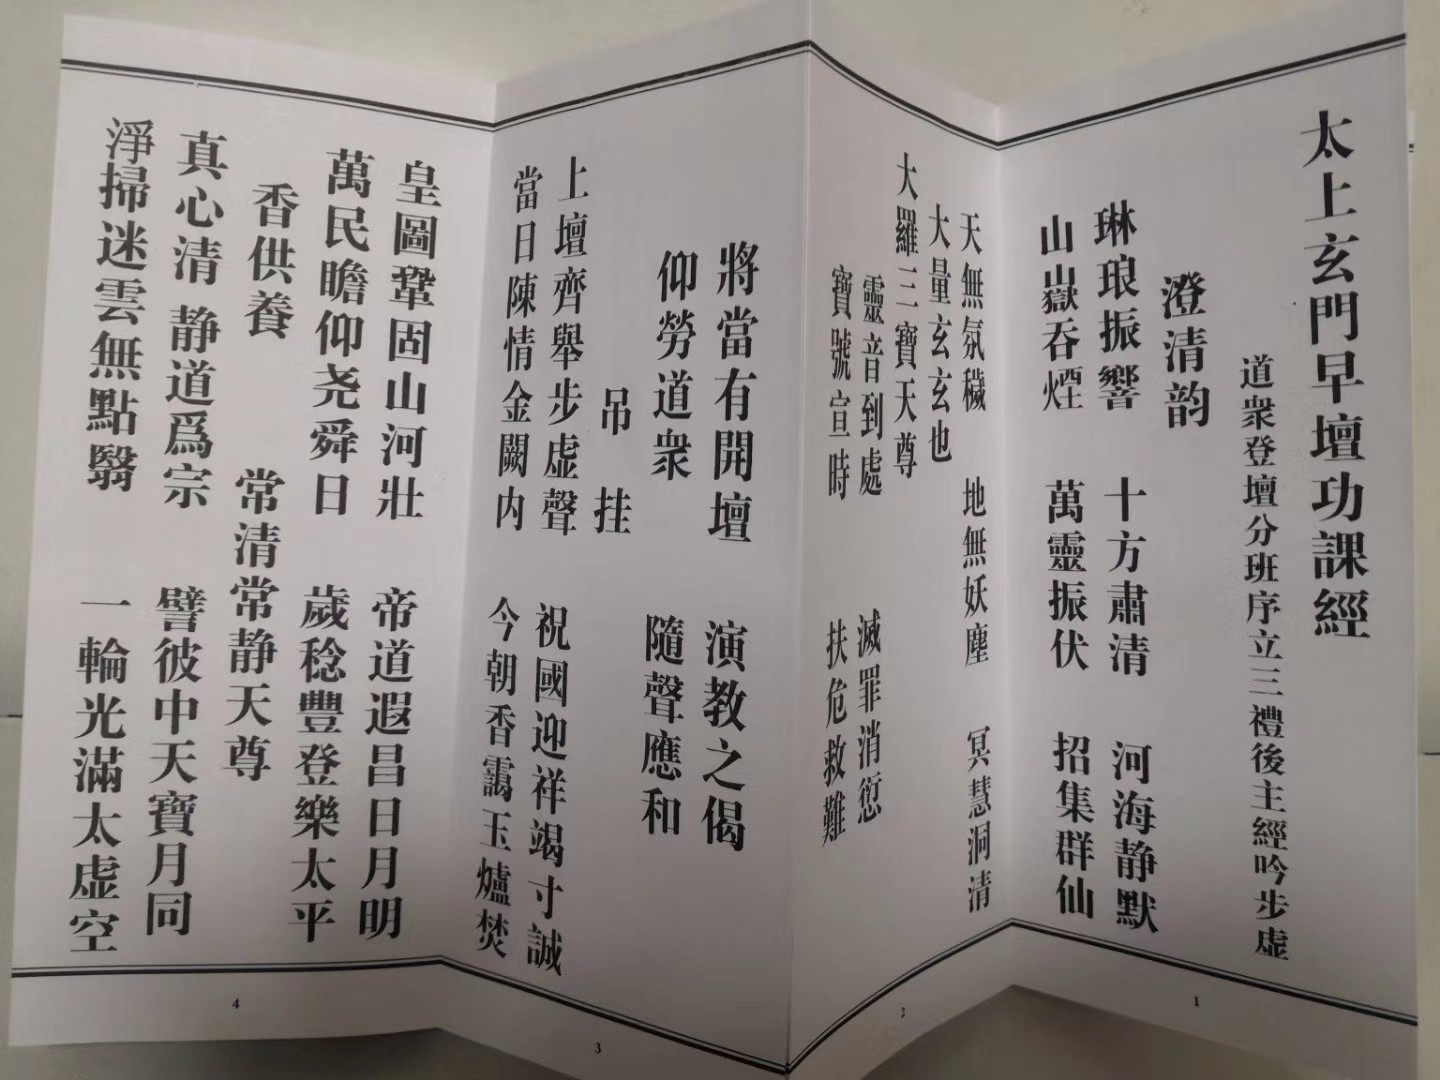 太上玄門早壇功課經
道衆登壇分班序立三禮後主經吟步虛
澄清韵
琳琅振響 十方肅清 河海静默
山嶽吞煙 萬靈振伏 招集群仙
1
天無氛穢 地無妖塵 冥慧洞清
大量玄玄也
大羅三寶天尊
靈音到處 滅罪消愆
寶號宣時 扶危救難
2
將當有開壇 演教之偈
仰勞道衆 隨聲應和
吊挂
上壇齊舉步虚聲 祝國迎祥竭寸誠
當日陳情金闕内 今朝香靄玉爐焚
3
皇圖鞏固山河壯 帝道遐昌日月明
萬民瞻仰尧舜日 歲稔豐登樂太平
香供養 常清常静天尊
真心清静道爲宗 譬彼中天寶月同
淨掃迷雲無點翳 一輪光滿太虚空
4